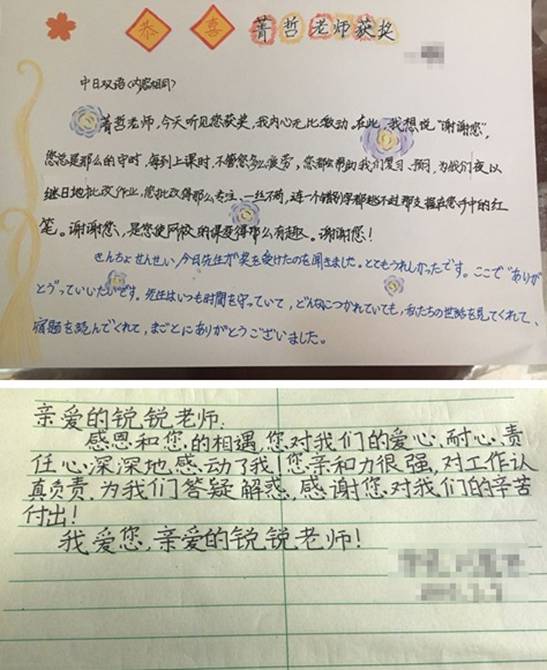 恭 喜 菁哲老师获奖
中日双语(内容相同)
菁哲老师,今天听见您获奖,我内心无比激动。在此,我想说“谢谢您”,
您总是那么的守时,每到上课时,不管您多么疲劳,您都会帮助我们复习、预习,为我们夜以
继日地批改作业,您批改得那么专注,一丝不苟,连一个错别字都逃不过那支握在您手中的红
笔。谢谢您,是您使网校的课变得那么有趣。谢谢您!
せんちょせんせい今日先生が奖を受けたのを闻きました。とてもうれしかったです。ここで“ありが
とうっていいたいです。先生はいつも时間を守っていて,どんなにつかれていても,私たちの世話を見てくれて、
宿題を読んでくれて,まことにありがとうございました。
亲爱的锐锐老师:
感恩和您的相遇,您对我们的爱心、耐心、责
任心深深地感动了我!您亲和力很强,对工作认
真负责,为我们答疑解惑,感谢您对我们的辛苦
付出!
我爱您,亲爱的锐锐老师!